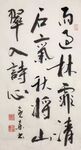 雨過林霏清
石氣秋將山
翠入詩心